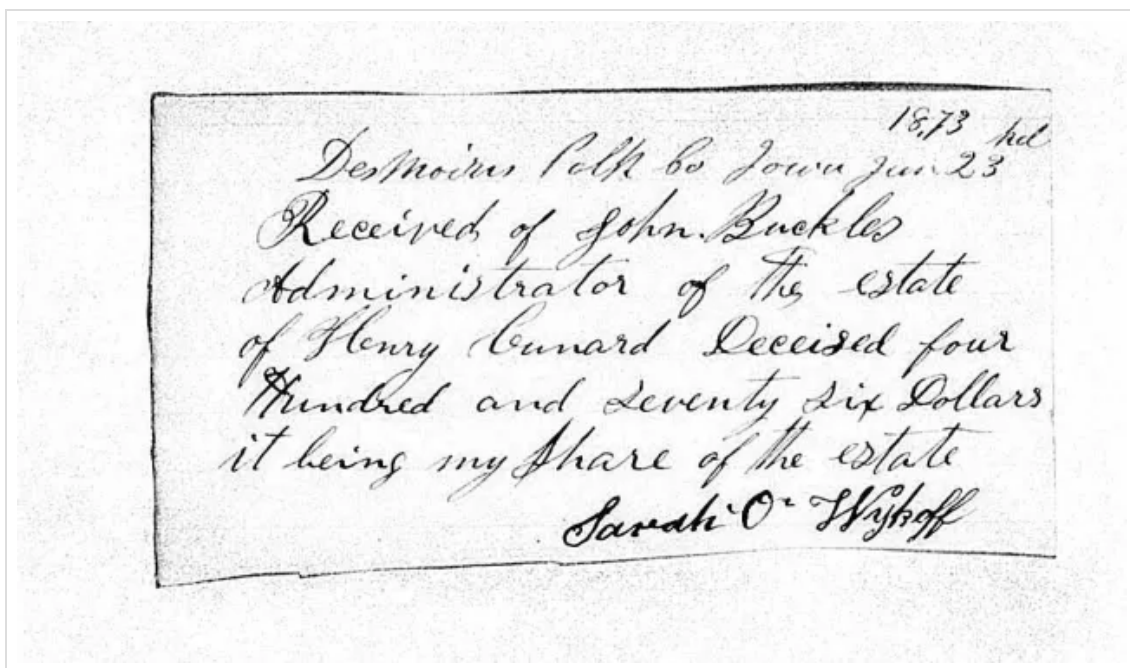 18,73
DesMoines Polk Co Iowa Jan 23
Received of John Buckles
Administrator of the estate
of Henry Cunard Deceised four
Hundred and seventy six Dollars
it being my share of the estate
Sarah O Wykoff